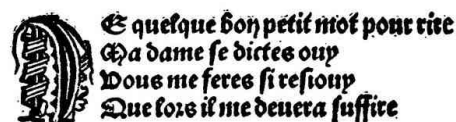 DE quelque bon petit mot pour rire
Ma dame se dictes ouy
Vous me feres si resiouy
Que lors il me deuera suffire